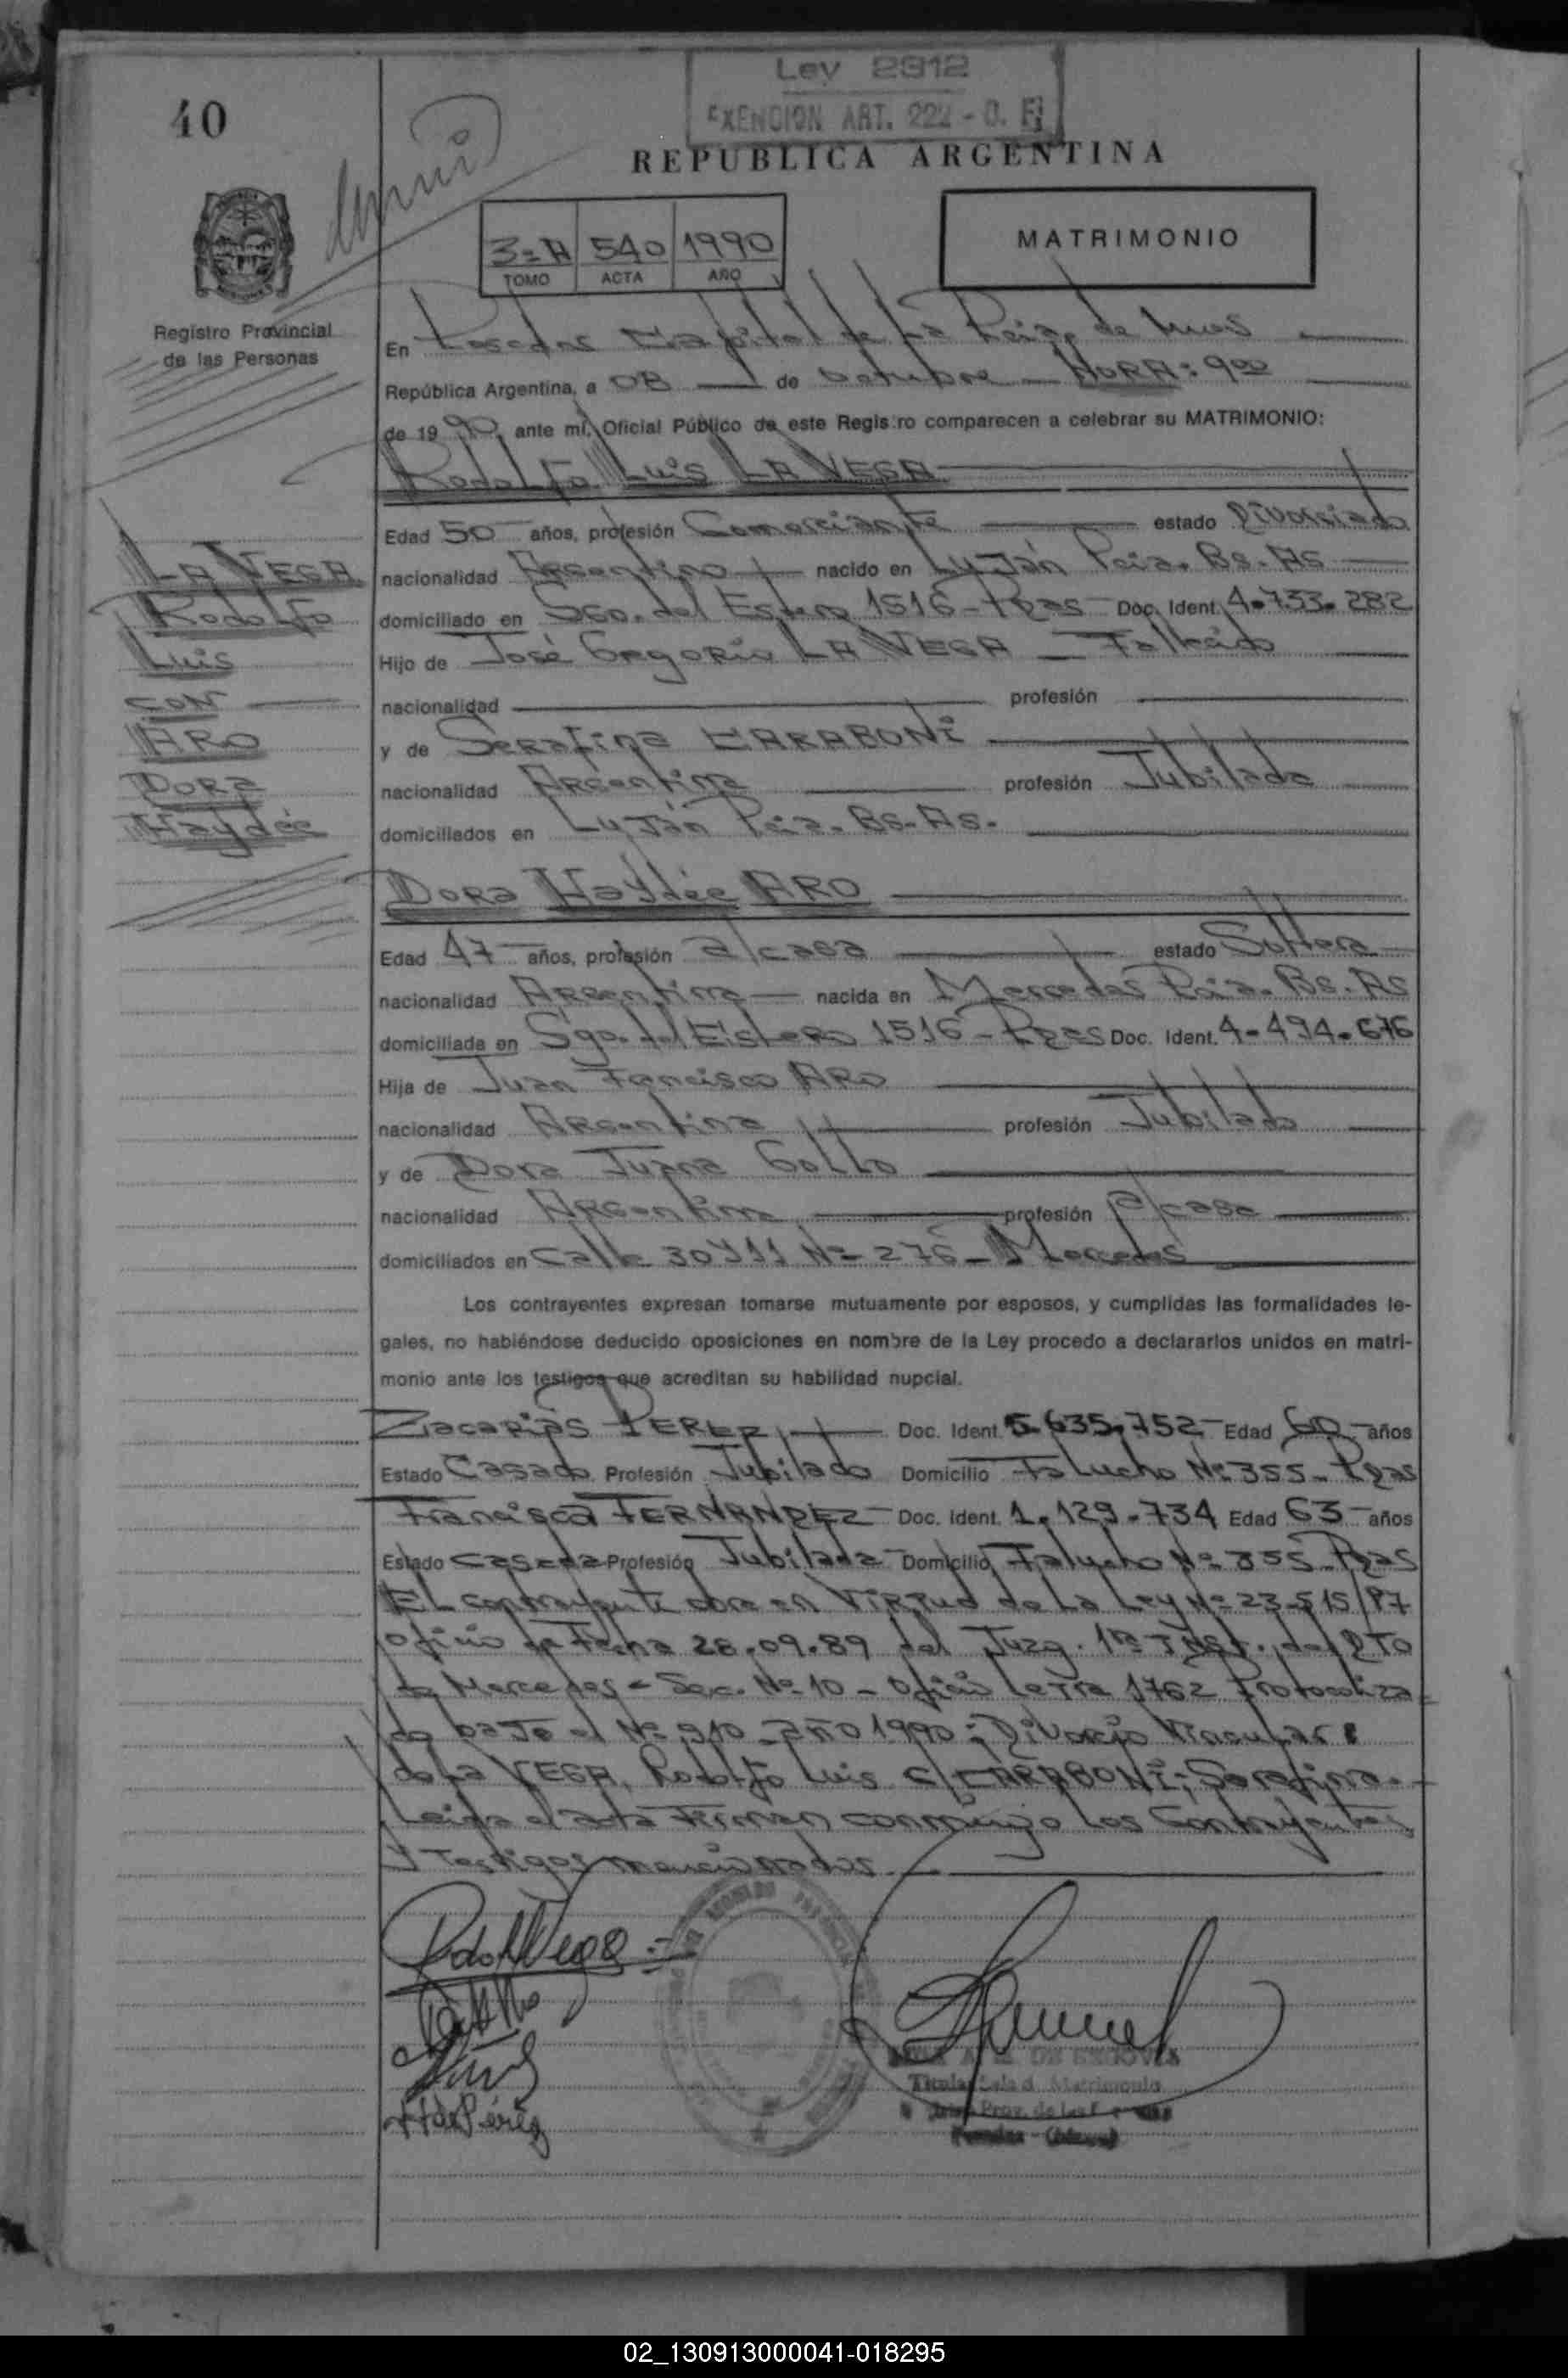 Ley 2312
EXENCION ART. 222 - C. F.
40
REPUBLICA ARGENTINA
3=A 540 1990
TOMO ACTA AÑO
MATRIMONIO
Registro Provincial
de las Personas
En Posadas Capital de La Pcia. de Mnes
República Argentina, a 08 de Octubre HORA: 9⁰⁰
de 19 90, ante mí, Oficial Público de este Registro comparecen a celebrar su MATRIMONIO:
Rodolfo Luis LA VEGA
Edad 50 años, profesión Comerciante estado Divorciado
nacionalidad Argentino nacido en Luján Pcia. Bs. As
domiciliado en Sgo. del Estero 1516 - Pdas Doc. Ident. 4.733.282
Hijo de José Gregorio LA VEGA - Fallecido
nacionalidad profesión
y de Serafina CARABONI
nacionalidad Argentina profesión Jubilada
domiciliados en Luján Pcia. Bs. As.
LA VEGA
Rodolfo
Luis
CON
ARO
Dora
Haydée
Dora Haydée ARO
Edad 47 años, profesión a/casa estado Soltera
nacionalidad Argentina nacida en Mercedes Pcia. Bs. As
domiciliada en Sgo. del Estero 1516 - Pdas Doc. Ident. 4.494.676
Hija de Juan Francisco ARO
nacionalidad Argentina profesión Jubilado
y de Dora Juana Gotto
nacionalidad Argentina profesión a/casa
domiciliados en Calle 30 y 11 Nº 276 - Mercedes
Los contrayentes expresan tomarse mutuamente por esposos, y cumplidas las formalidades le-
gales, no habiéndose deducido oposiciones en nombre de la Ley procedo a declararlos unidos en matri-
monio ante los testigos que acreditan su habilidad nupcial.
Zacarias PEREZ Doc. Ident. 5.635.752 Edad 60 años
Estado Casado Profesión Jubilado Domicilio Falucho Nº 355 - Pdas
Francisca FERNANDEZ Doc. Ident. 1.129.734 Edad 63 años
Estado casada Profesión Jubilada Domicilio Falucho Nº 355 - Pdas
El contrayente obra en Virtud de La Ley Nº 23.515/87
oficio de Fecha 28.09.89 del Juzg. 1ra Inst. del DTO
de Mercedes - Sec. Nº 10 - oficio Letra 1762 Protocoliza-
do bajo el Nº 910 - año 1990: Divorcio Vincular:
de La VEGA, Rodolfo Luis c/CARABONI; Serafina.-
Leida el acta Firman conmigo Los Contrayentes
y Testigos mencionados
DE SEGOVIA
Titular Sala d Matrimonio
Prov. de las
Posadas - (Mnes)
02_130913000041-018295